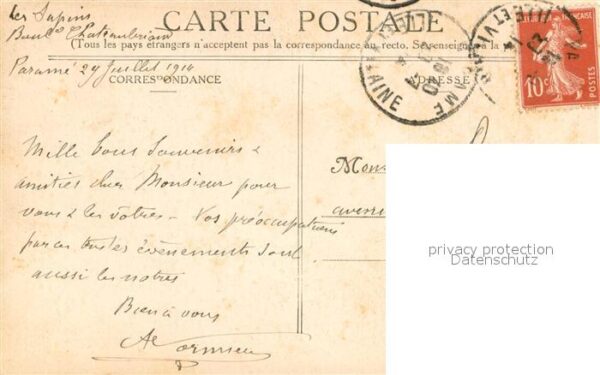 Les Sapins
Boul^d Chateaubriand
Paramé 29 Juillet 1914
CARTE POSTALE
(Tous les pays étrangers n'acceptent pas la correspondance au recto. Se renseigner à la
CORRESPONDANCE
ADRESSE
PARAMÉ
ILLE ET VILAINE
RÉPUBLIQUE FRANÇAISE
10c
POSTES
Mille bons souvenirs &
amitiés cher Monsieur pour
vous & les vôtres - Vos préoccupations
par ces tristes évènements sont
aussi les nôtres
Bien à vous
Mons
avenue
privacy protection
Datenschutz